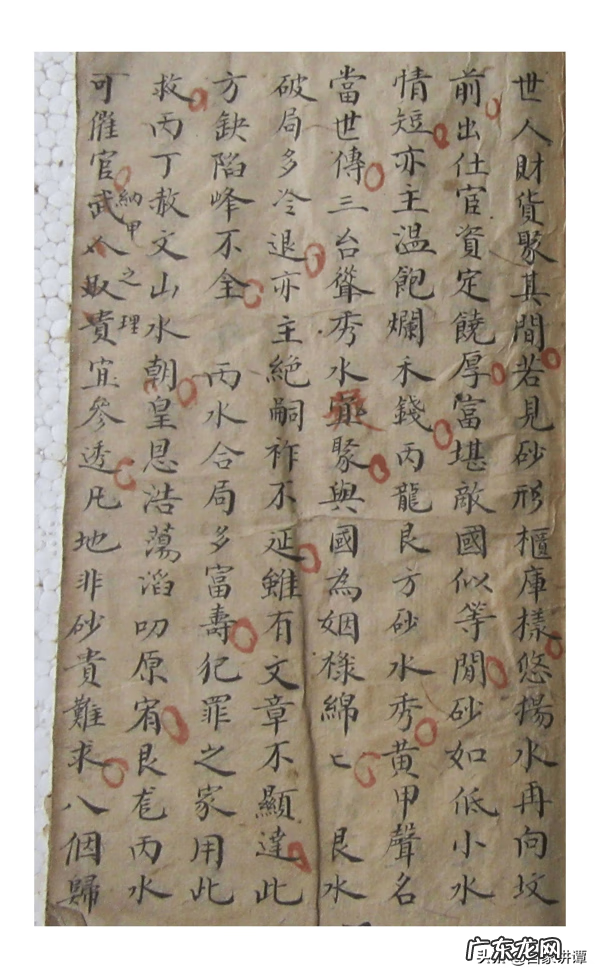 世人財貨聚其間若見砂形櫃庫樣悠揚水再向坟
前出仕官資定饒厚富堪敵國似等閒砂如低小水
情短亦主温飽爛禾錢丙龍艮方砂水秀黄甲聲名
當世傳三台聳秀水聚與國為姻祿綿〻 艮水
破局多冷退亦主絶嗣祚不延雖有文章不顯達此
方缺陷峰不全 丙水合局多富壽犯罪之家用此
救丙丁赦文山水朝皇恩浩蕩滔叨原宥艮丙水
可催官武人取貴宜參透凡地非砂貴難求八個歸
納甲之理
广东龙网
头条 @百家讲谭